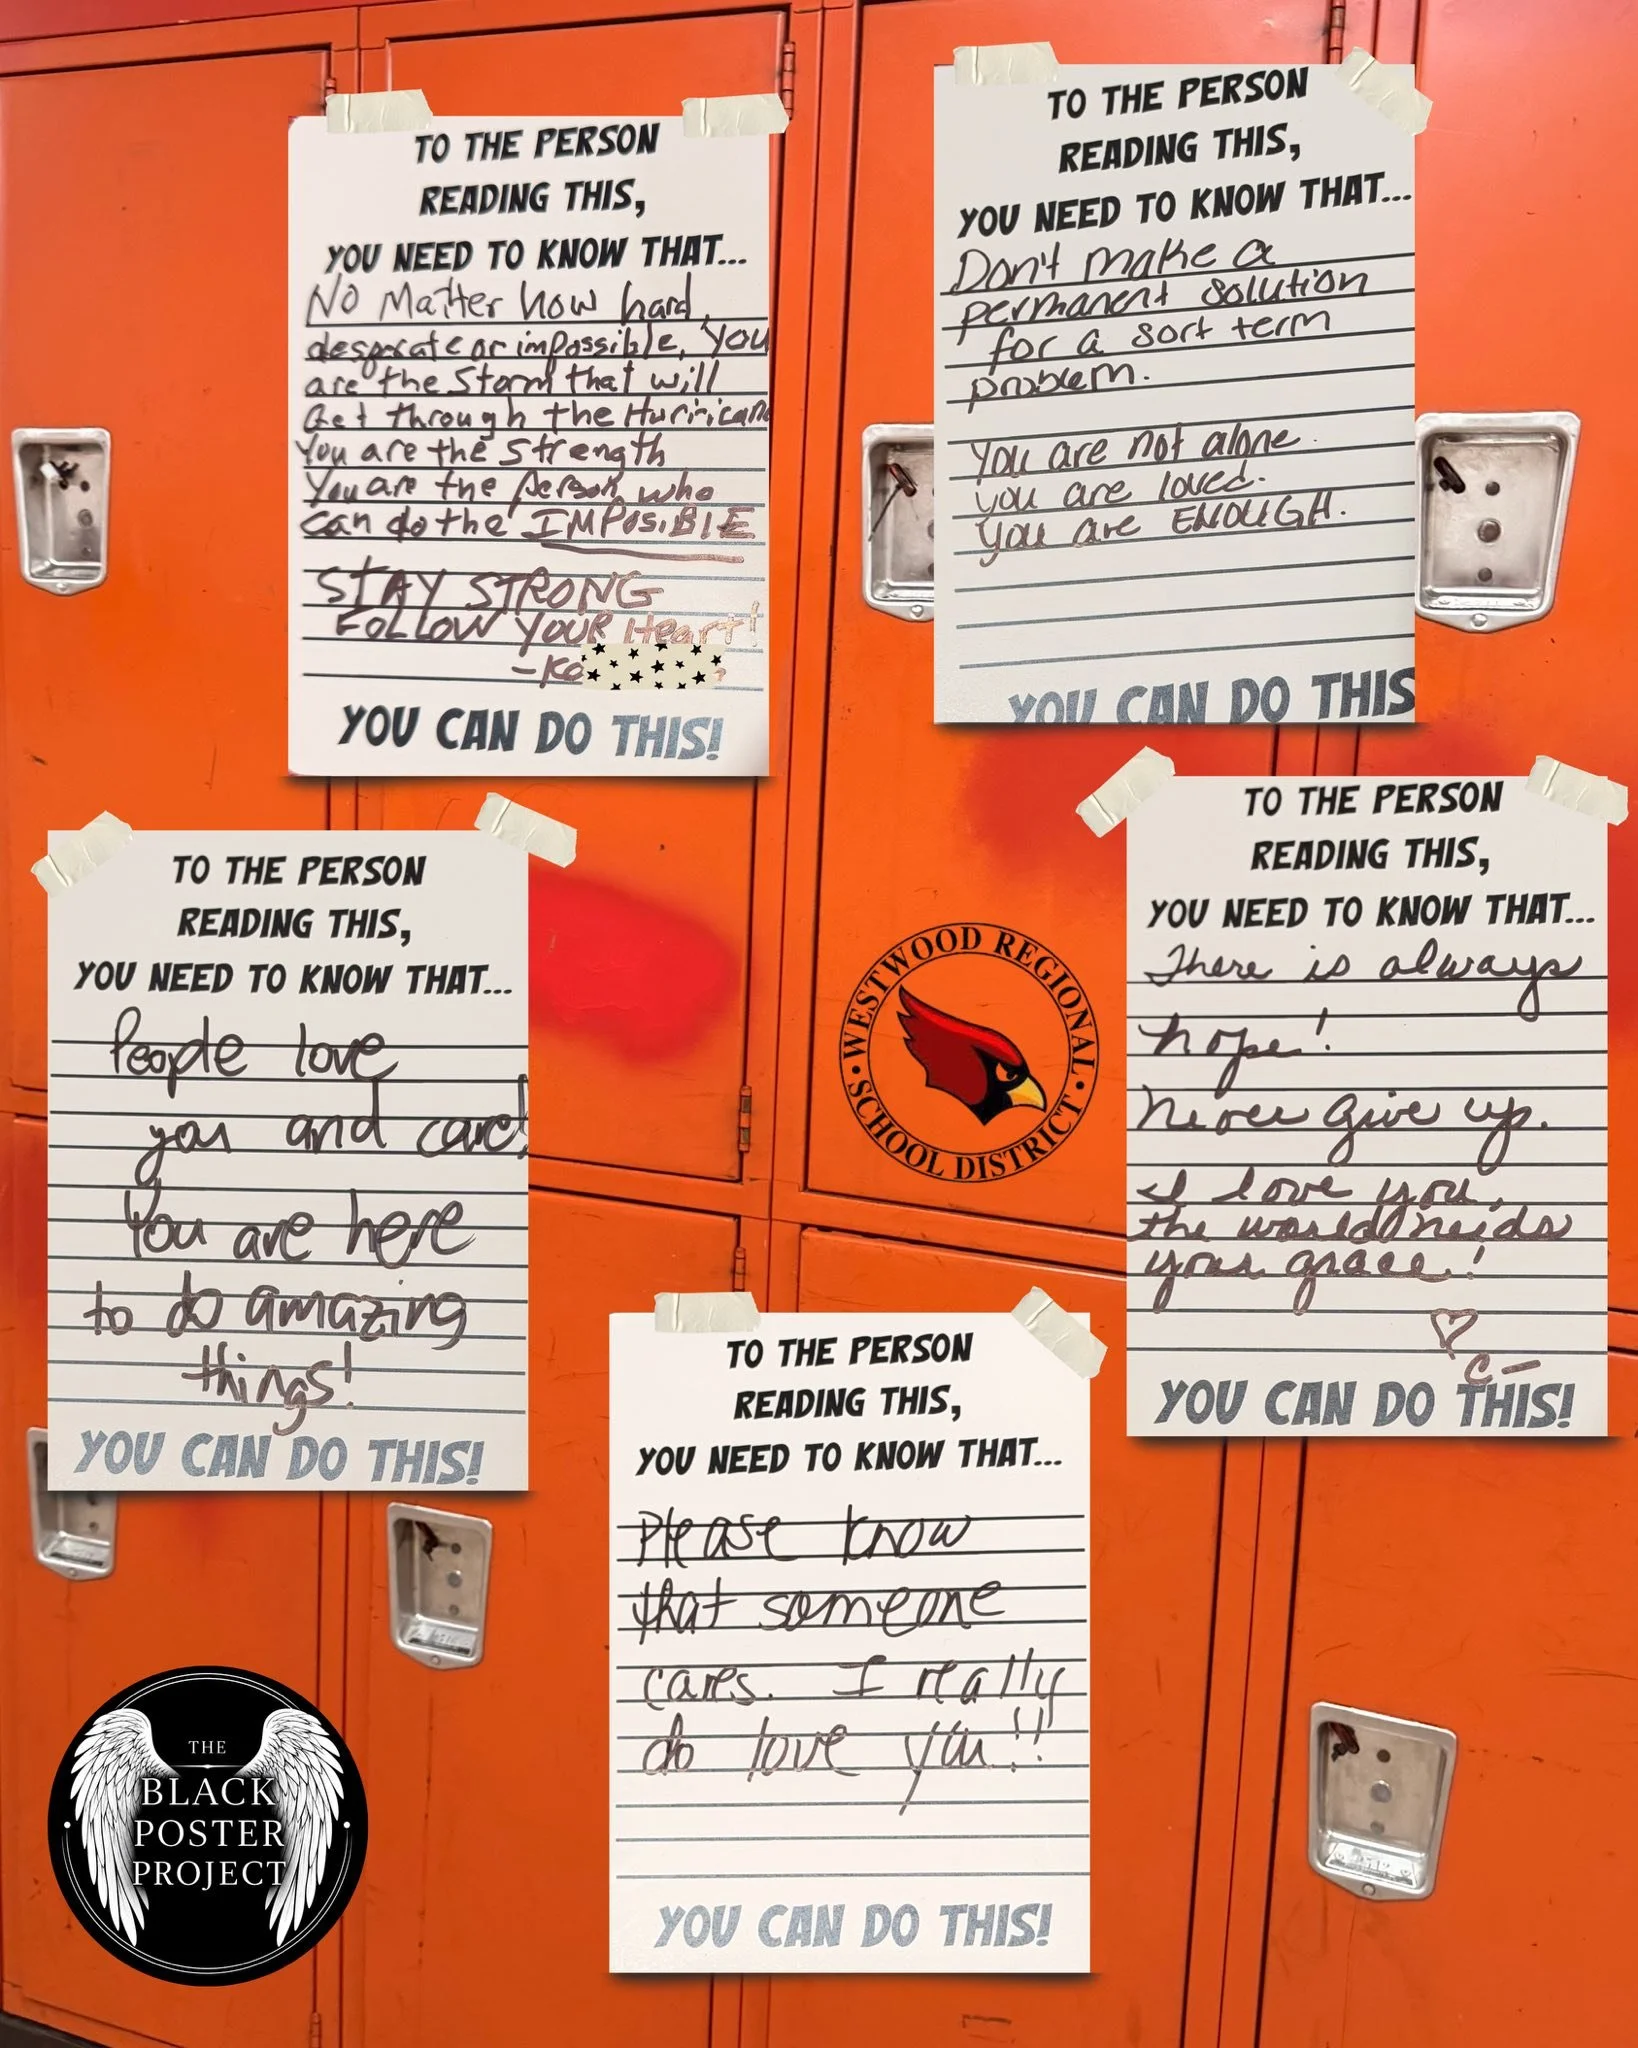 TO THE PERSON
READING THIS,
YOU NEED TO KNOW THAT...
No Matter how hard,
desperate or impossible, You
are the Storm that will
Get through the Hurricane
You are the Strength
You are the person who
can do the IMPOSSIBLE
STAY STRONG
FOLLOW YOUR Heart!
-Ka
YOU CAN DO THIS!
TO THE PERSON
READING THIS,
YOU NEED TO KNOW THAT...
Don't make a
permanent solution
for a sort term
problem.
You are not alone.
you are loved.
You are ENOUGH.
YOU CAN DO THIS
TO THE PERSON
READING THIS,
YOU NEED TO KNOW THAT...
People love
you and care!
You are here
to do amazing
things!
YOU CAN DO THIS!
WESTWOOD REGIONAL
SCHOOL DISTRICT
TO THE PERSON
READING THIS,
YOU NEED TO KNOW THAT...
There is always
hope!
Never give up.
I love you,
the world needs
your grace!
C-
YOU CAN DO THIS!
TO THE PERSON
READING THIS,
YOU NEED TO KNOW THAT...
Please know
that someone
cares. I really
do love you!!
YOU CAN DO THIS!
THE
BLACK
POSTER
PROJECT